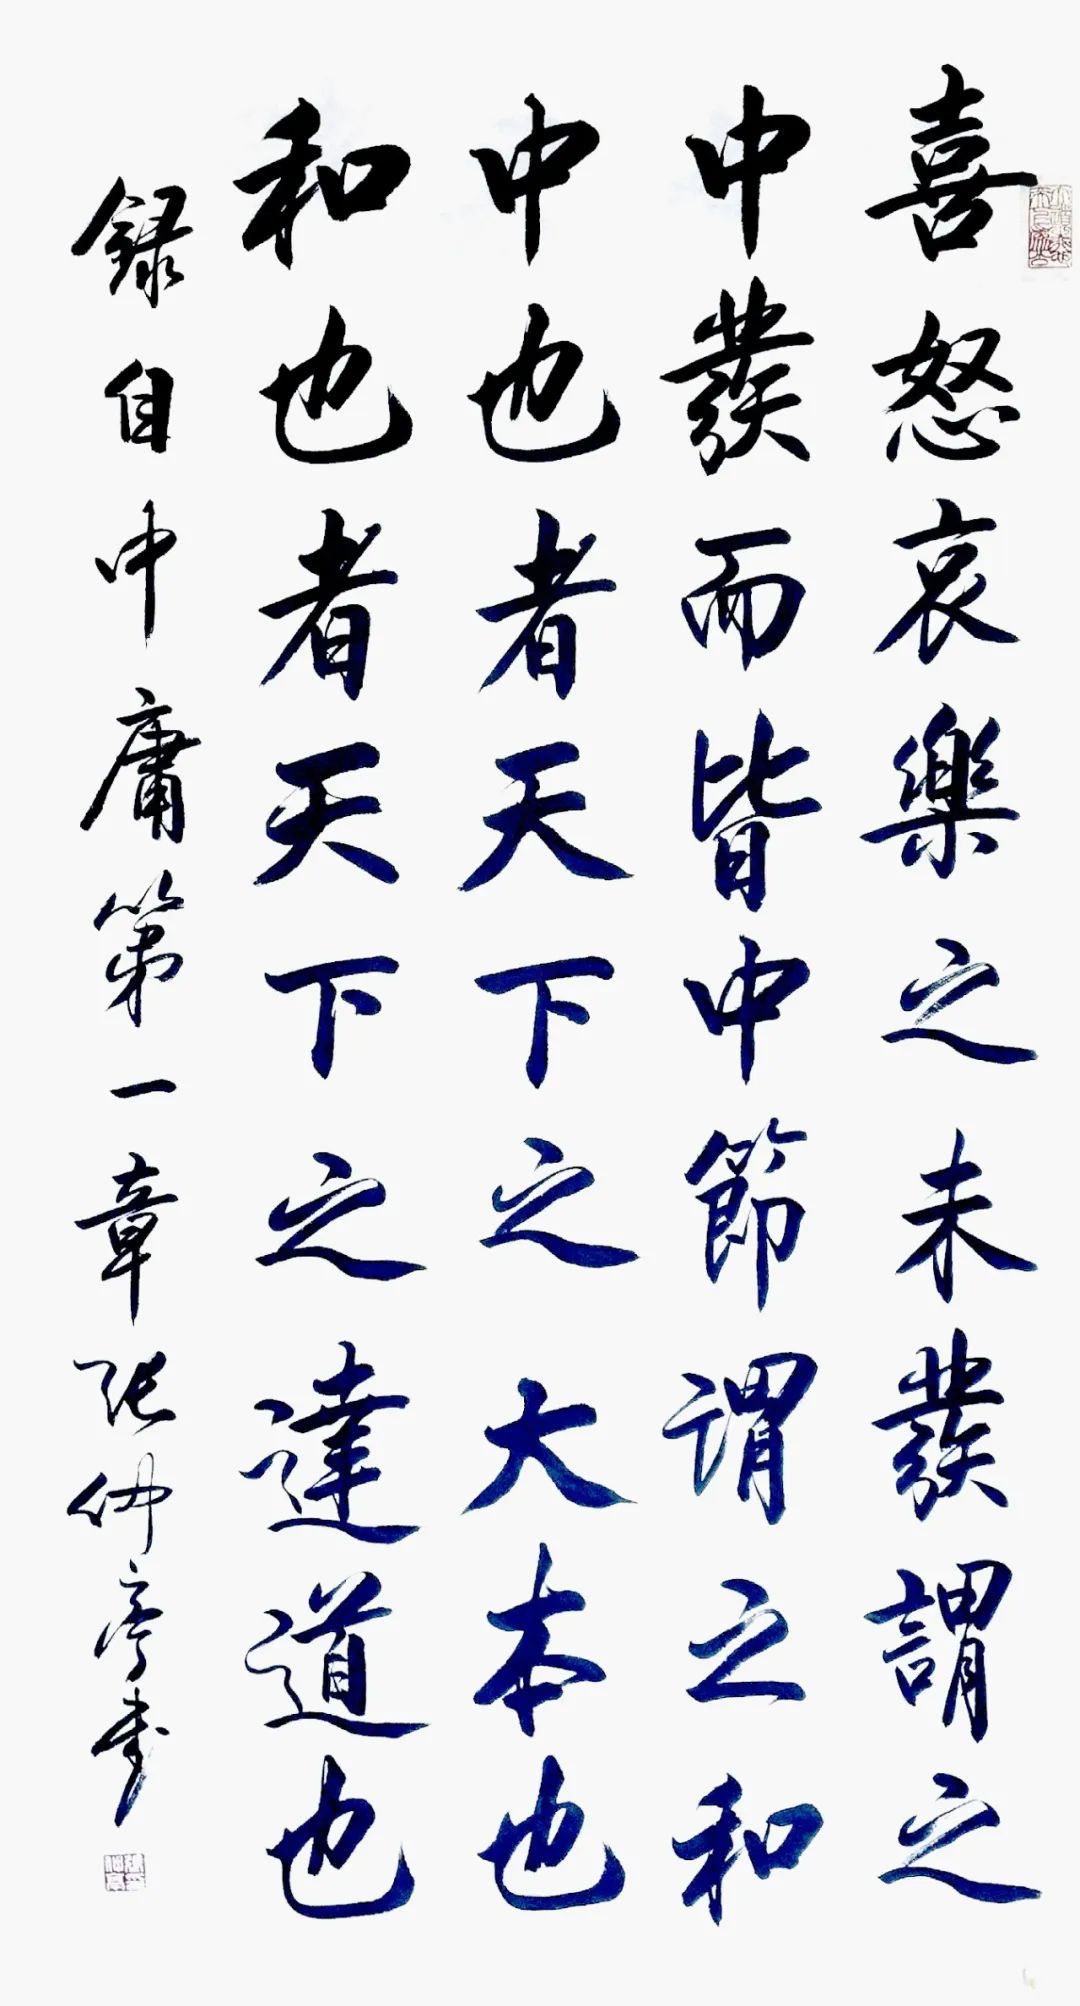 喜怒哀樂之未發謂之
中發而皆中節谓之和
中也者天下之大本也
和也者天下之達道也
録自中庸第一章张仲亭書